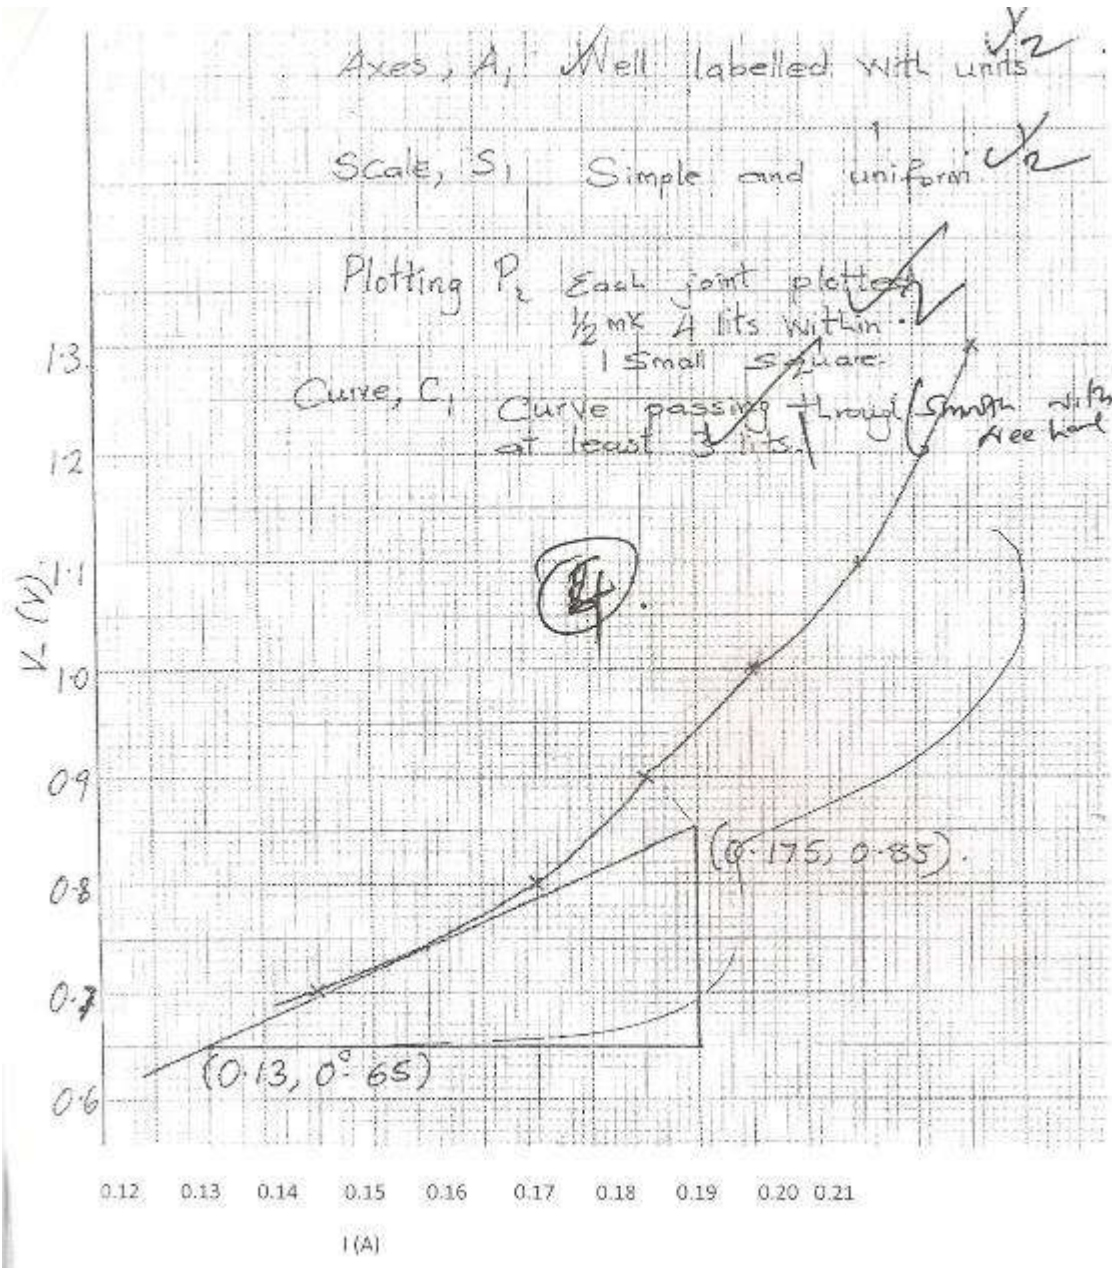 Axes, A1 Well labelled with units ½
Scale, S1 Simple and uniform ½
Plotting P2 Each joint plotted
½ mk 4 lits within 2
1 small square.
Curve, C1 Curve passing through (smooth with
at least 3 lits. 1 free hand
1.3
1.2
1.1
V (V)
4
1.0
0.9
(0.175, 0.85).
0.8
0.7
(0.13, 0.65)
0.6
0.12 0.13 0.14 0.15 0.16 0.17 0.18 0.19 0.20 0.21
I (A)